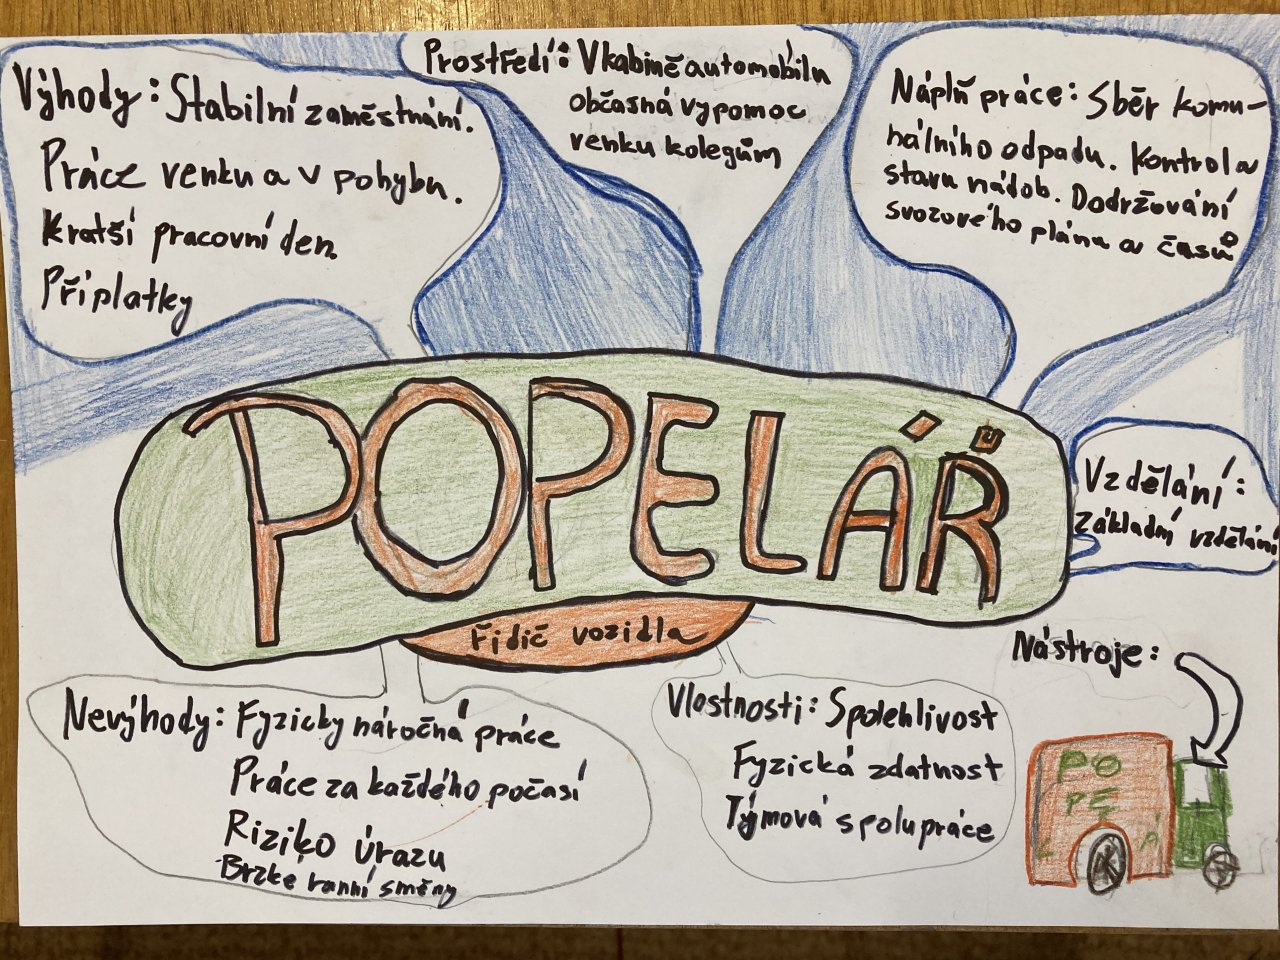 Výhody: Stabilní zaměstnání.
Práce venku a v pohybu.
Kratší pracovní den.
Příplatky
Prostředí: V kabině automobilu
občasná vypomoc
venku kolegům
Náplň práce: Sběr komu-
nálního odpadu. Kontrola
stavu nádob. Dodržování
svozového plánu a časů
POPELÁŘ
řidič vozidla
Vzdělání:
Základní vzdělání
Nevýhody: Fyzicky náročná práce
Práce za každého počasí
Riziko úrazu
Brzké ranní směny
Vlastnosti: Spolehlivost
Fyzická zdatnost
Týmová spolupráce
Nástroje:
PO
PE